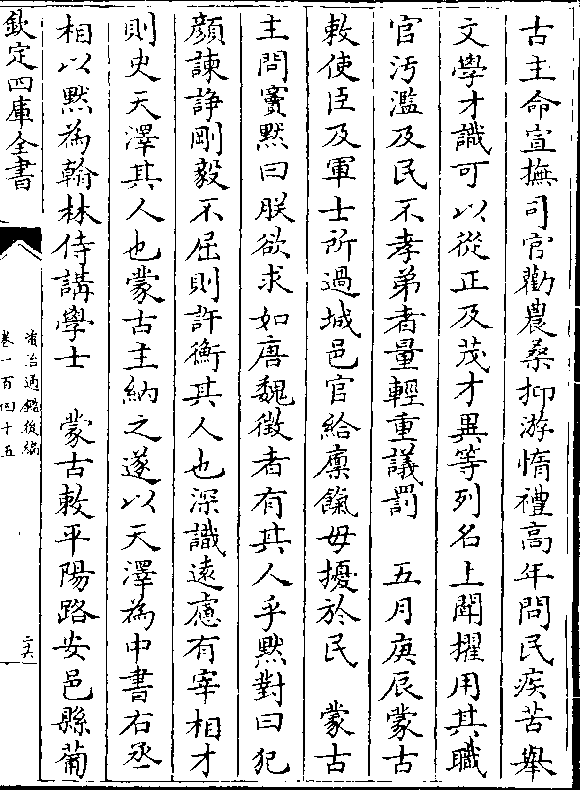 古主命宣撫司官勸農桑抑游惰禮高年問民疾苦舉
文學才識可以從正及茂才異等列名上聞擢用其職
官汚濫及民不孝弟者量輕重議罰　五月庚辰蒙古
敕使臣及軍士所過城邑官給廩餼毋擾於民　蒙古
主問竇默曰朕欲求如唐魏徵者有其人乎默對曰犯
顔諫諍剛毅不屈則許衡其人也深識遠慮有宰相才
則史天澤其人也蒙古主納之遂以天澤為中書右丞
相以默為翰林侍講學士　蒙古敕平陽路安邑縣葡
欽定四庫全書
資治通鑑後編
卷一百四十五
二六